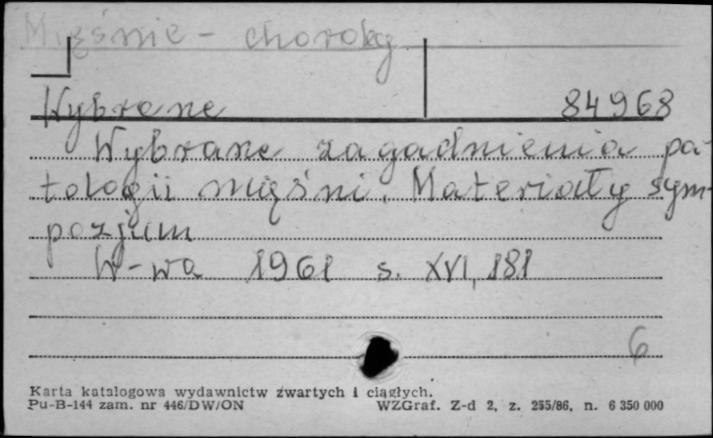 Mięśnie - choroby
Wybrane 84968
Wybrane zagadnienia pa-
tologii mięśni. Materiały sym-
pozjum
W-wa 1961 s. XVI, 181
6
Karta katalogowa wydawnictw zwartych i ciągłych.
Pu-B-144 zam. nr 446/DW/ON WZGraf. Z-d 2, z. 255/86, n. 6 350 000